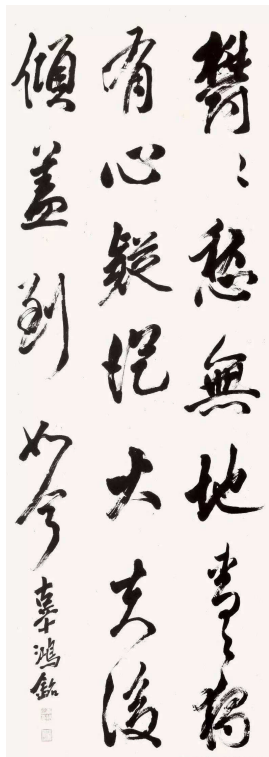 鬱〻愁無地青〻獨
有心疑從大夫後
傾蓋到如今
辜鴻銘